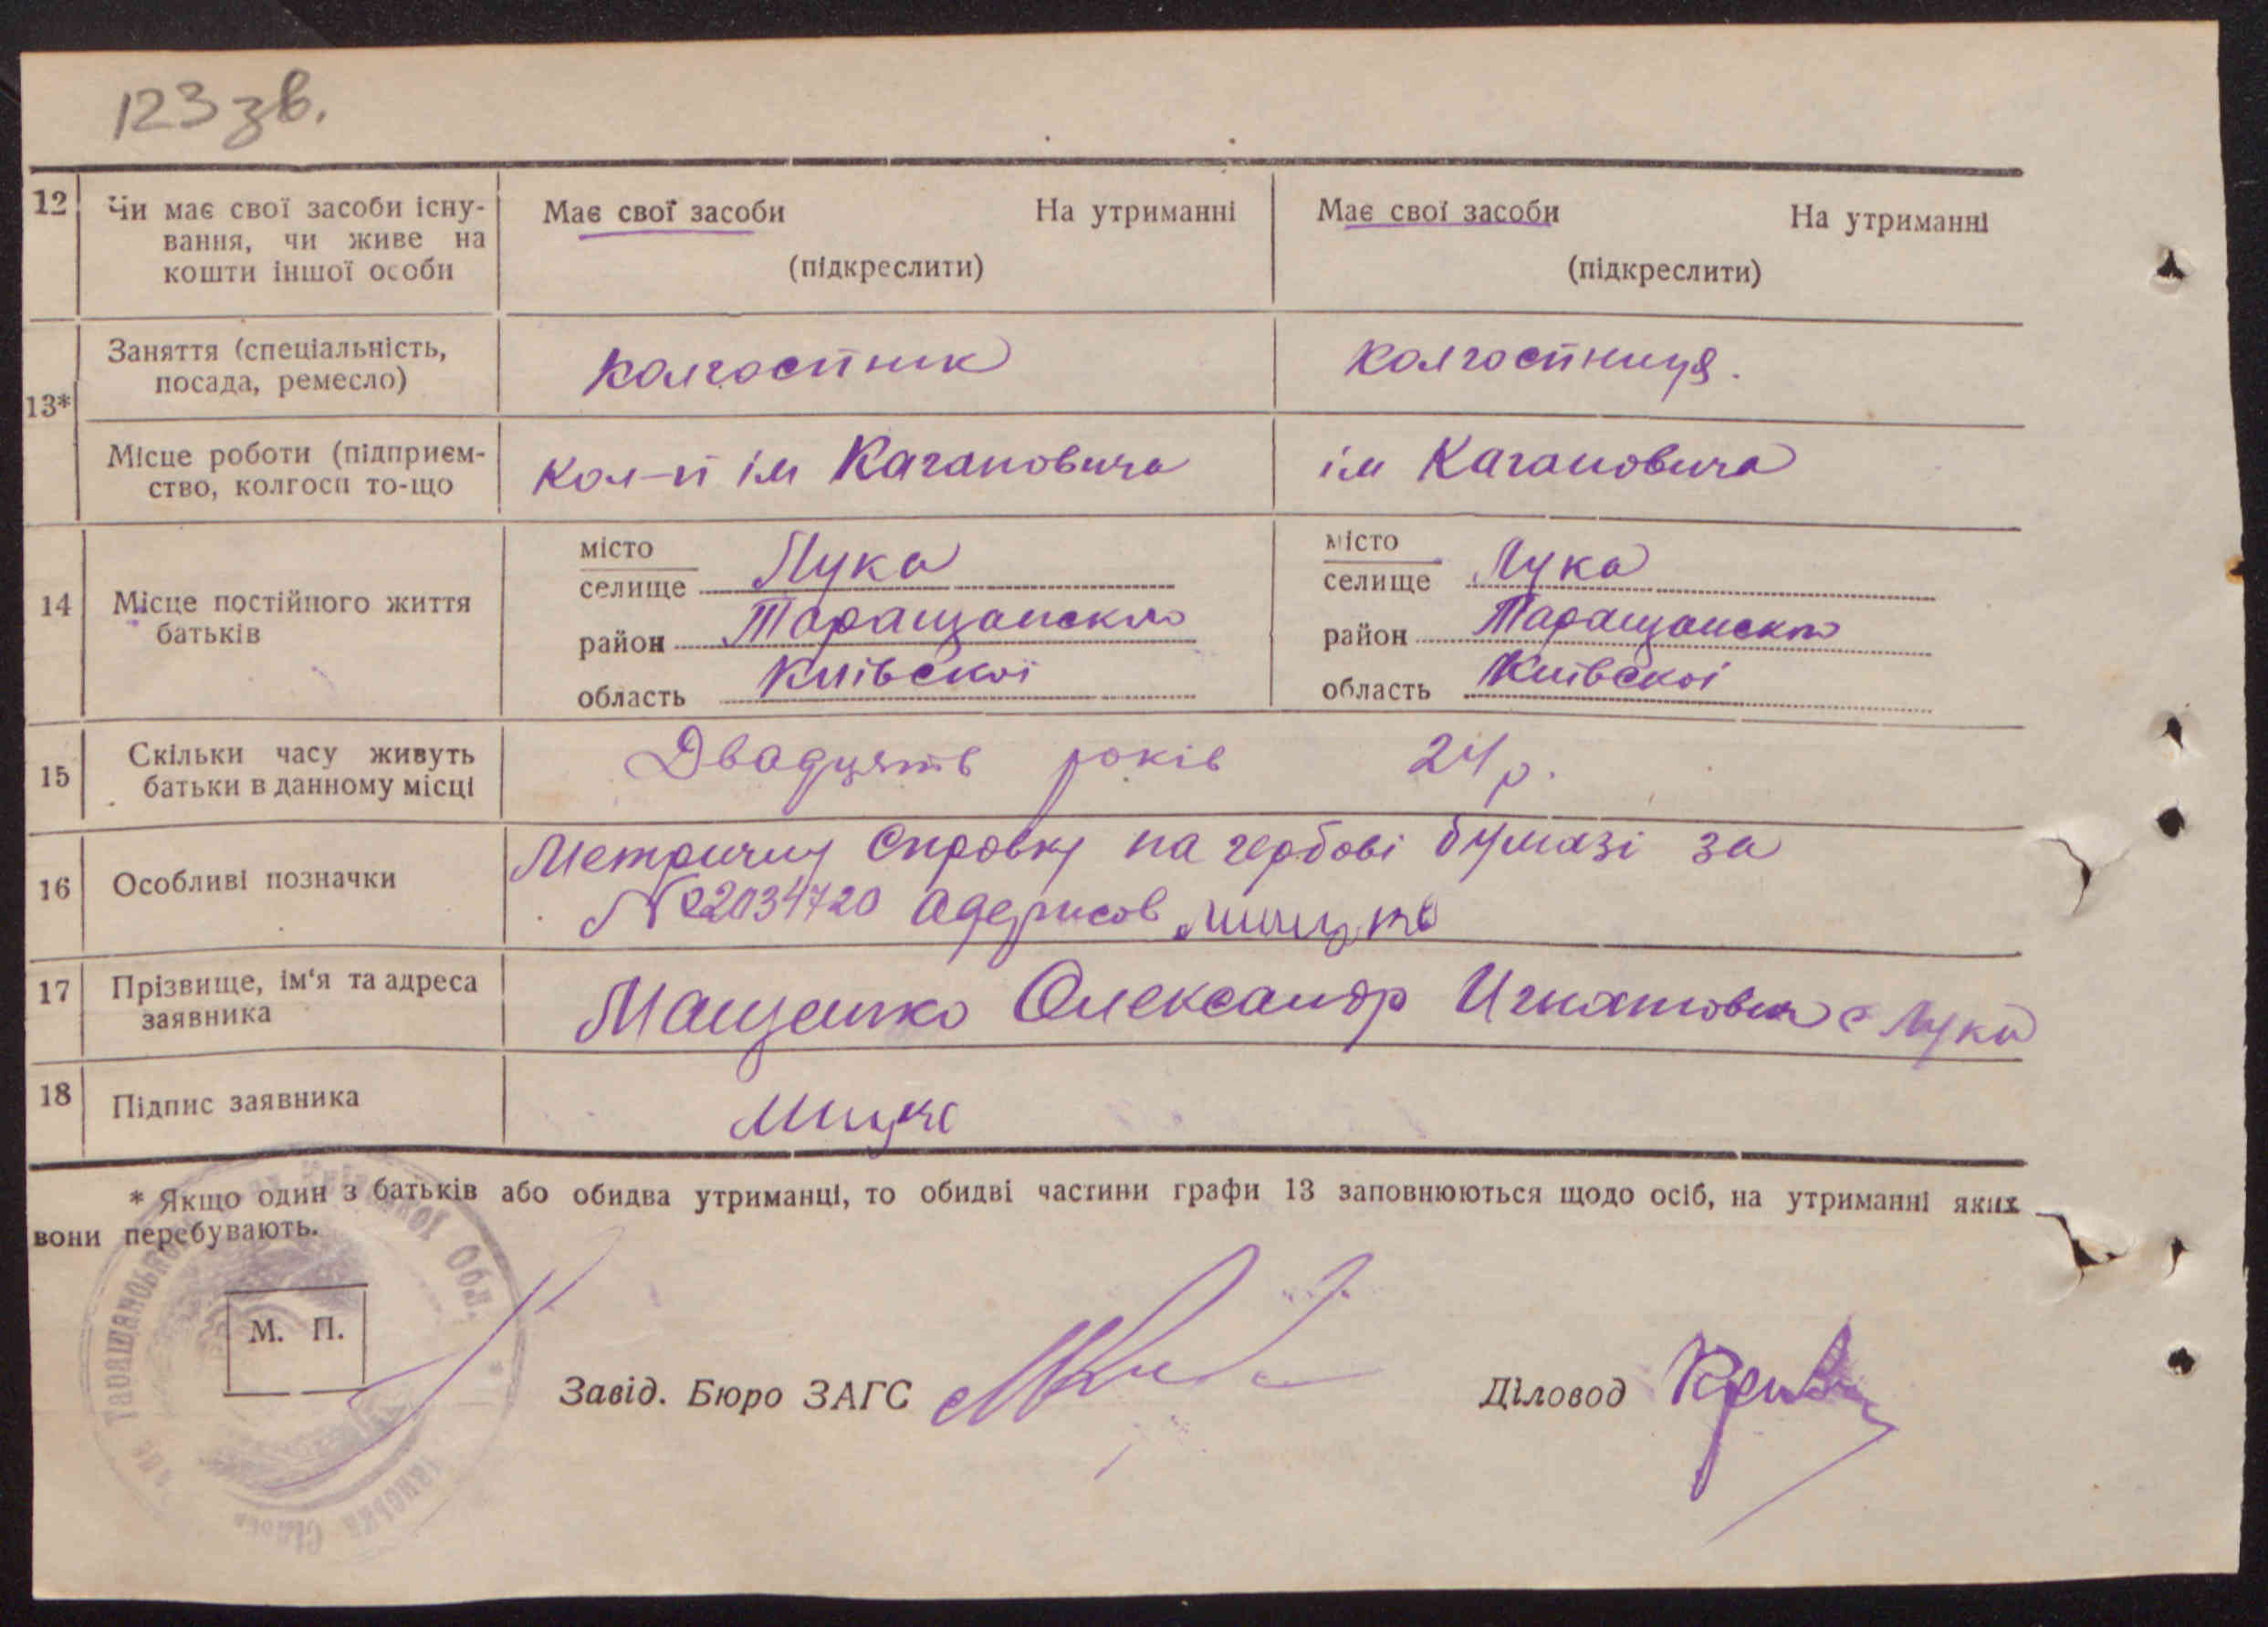 123 зв.
12 Чи має свої засоби існу- Має свої засоби На утриманні Має свої засоби На утриманні
вання, чи живе на
кошти іншої особи (підкреслити) (підкреслити)
Заняття (спеціальність, колгоспник колгоспниця.
посада, ремесло)
13*
Місце роботи (підприєм- кол-п ім Кагановича ім Кагановича
ство, колгосп то-що
місто місто
селище Лука селище Лука
14 Місце постійного життя район Таращанского район Таращанского
батьків
область Київскої область Київскої
15 Скільки часу живуть Двадцять років 24 р.
батьки в данному місці
16 Особливі позначки Метричну справку на гербові бумазі за
№ 2034720
17 Прізвище, ім'я та адреса Мащенко Олександр Игнатович с Лука
заявника
18 Підпис заявника
* Якщо один з батьків або обидва утриманці, то обидві частини графи 13 заповнюються щодо осіб, на утриманні яких
вони перебувають.
М. П.
Завід. Бюро ЗАГС Діловод